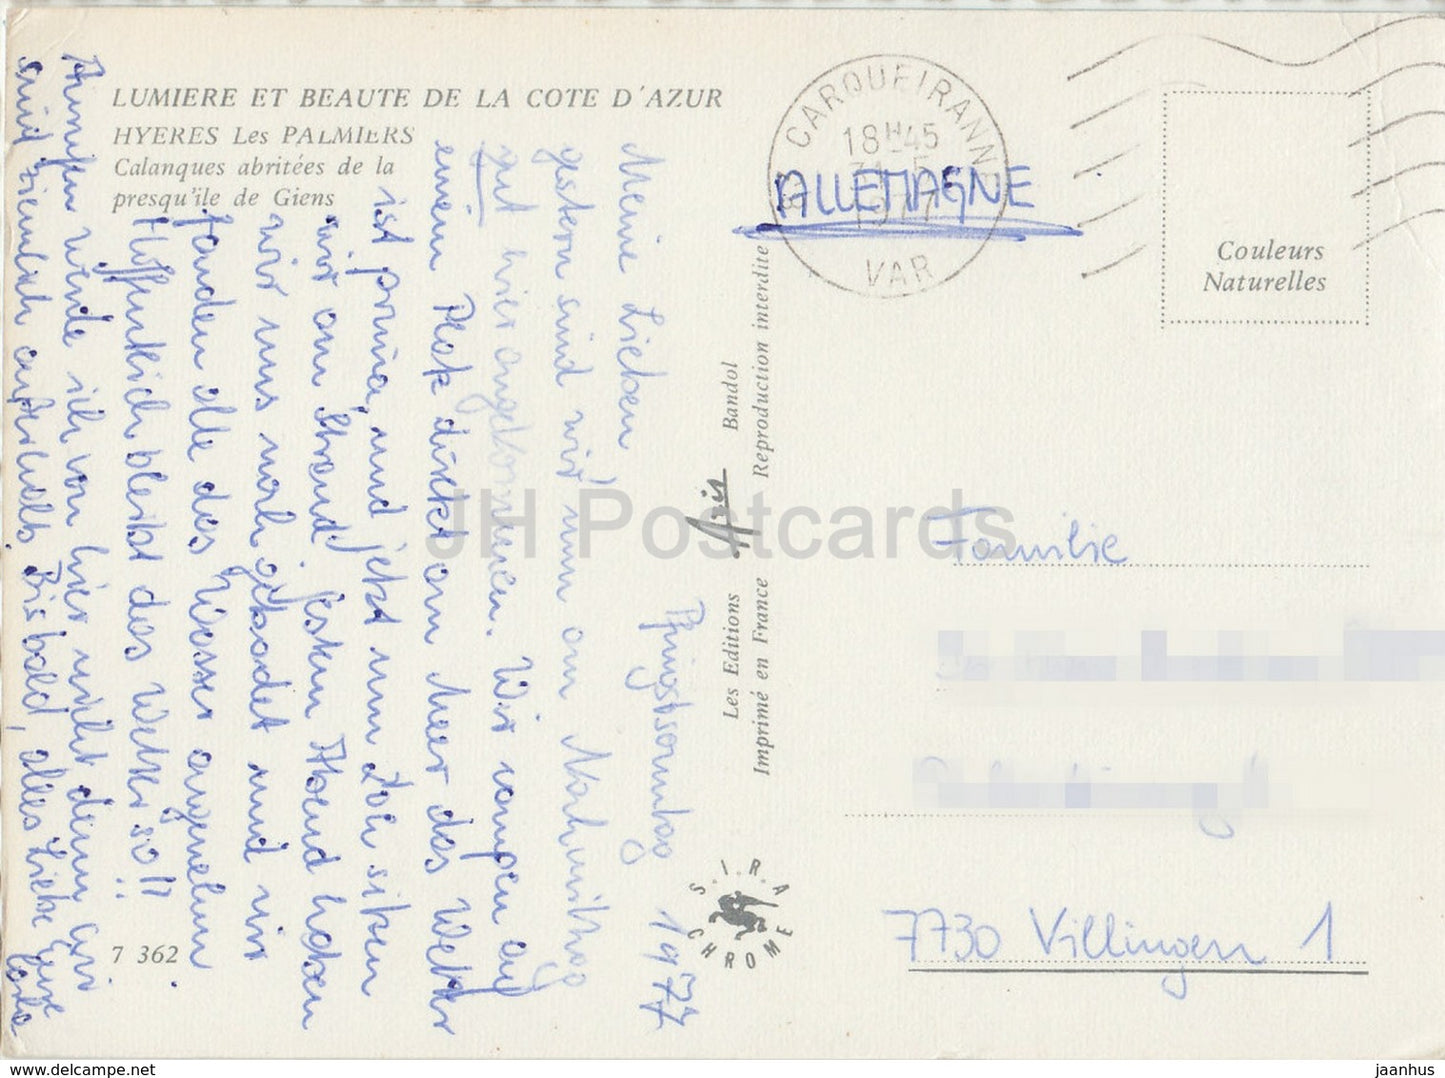 LUMIERE ET BEAUTE DE LA COTE D'AZUR
HYERES Les PALMIERS
Calanques abritées de la
presqu'île de Giens
Pfingstsonntag 1977
Meine Lieben!
gestern sind wir nun am Nachmittag
gut hier angekommen. Wir campen auf
einem Platz direkt am Meer das Wetter
ist prima, und jetzt um
wir am Strand. Gestern Abend haben
wir uns noch gebadet und wir
fanden alle das Wasser angenehm.
Hoffentlich bleibt das Wetter so!!
werde ich von hier nicht denn wir
sind ziemlich Bis bald, alles Liebe Eure
CARQUEIRANNE
18H45
31-5
1977
VAR
ALLEMAGNE
Couleurs
Naturelles
Les Editions Aris Bandol
Imprimé en France Reproduction interdite
S.I.R.A
CHROME
Familie
7730 Villingen 1
7 362
JH Postcards
www.delcampe.net
jaanhus